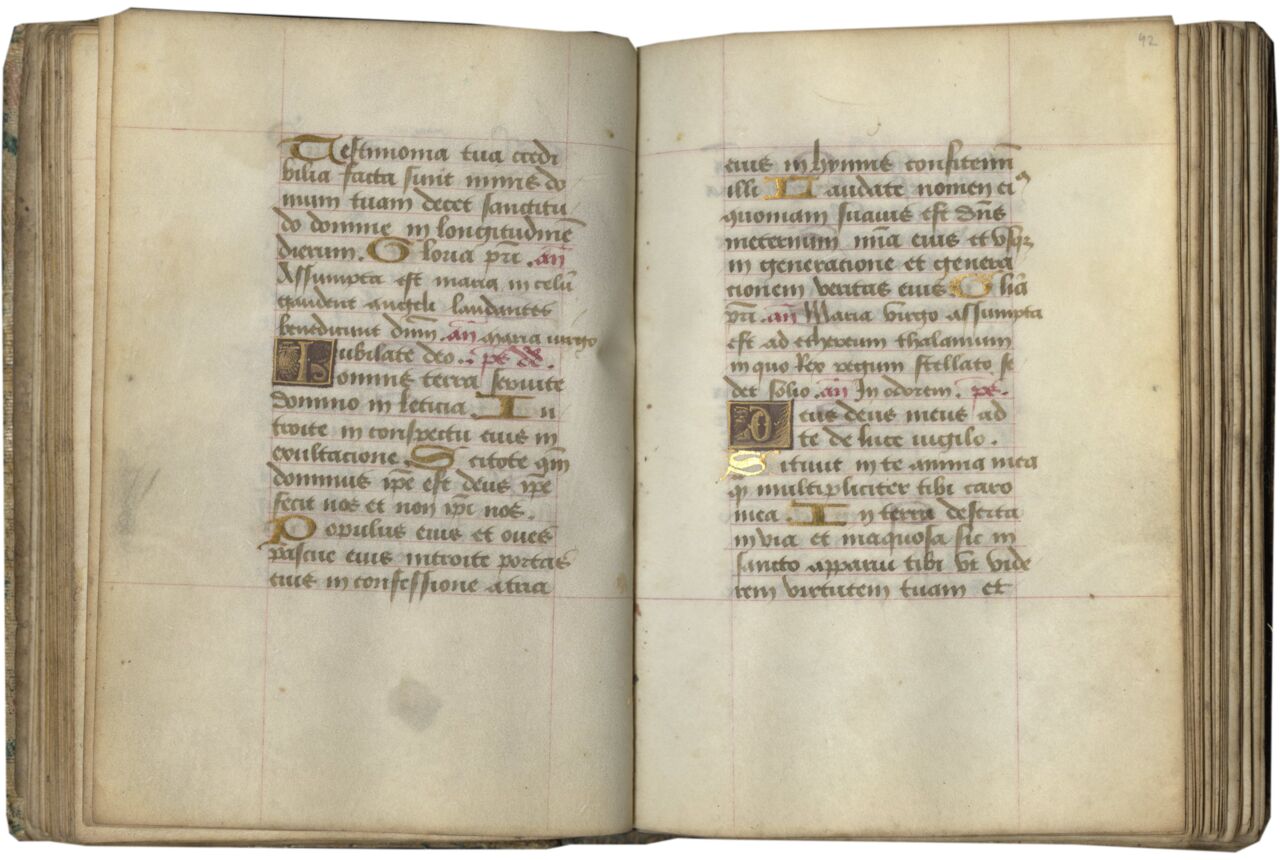 Testimonia tua credi
bilia facta sunt nimis do
mum tuam decet sanctitu
do domine in longitudinē
dierum. Gloria pr̄i. an̄
Assumpta est maria in celū
gaudent angeli laudantes
benedicunt dn̄m. an̄ maria uirgo
Iubilate deo. ps
omnis terra seruite
domino in leticia. In
troite in conspectu eius in
exultacione. Scitote qm̄
dominus ip̄e est deus ip̄e
fecit nos et non ip̄i nos.
Populus eius et oues
pascue eius introite portas
eius in confessione atria
92
eius in hymnis confitemī
illi Laudate nomen eiꝰ
quoniam suauis est dn̄s
ineternum mīa eius et vsqꝫ
in generacione et genera
cionem veritas eius. Gl̄ia
pr̄i. an̄ Maria virgo assumpta
est ad ethereum thalamum
in quo Rex regum stellato se
det solio. an̄ In odorem. ps.
Deus deus meus ad
te de luce uigilo.
Sitiuit in te anima mea
q̄ multipliciter tibi caro
mea. In terra deserta
in via et inaquosa sic in
sancto apparui tibi vt vide
rem virtutem tuam et